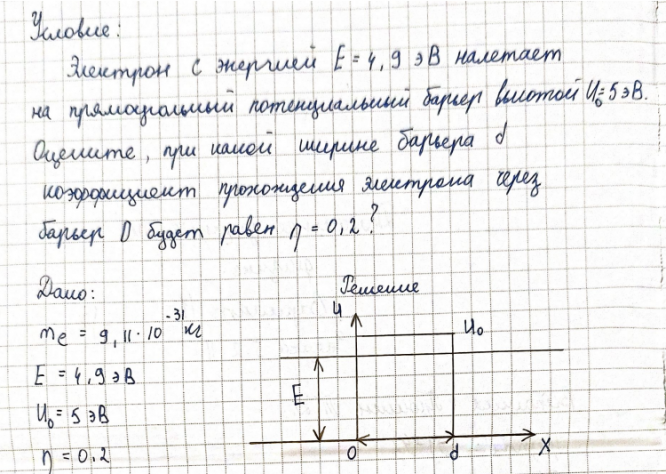 Условие:
Электрон с энергией E = 4,9 эВ налетает
на прямоугольный потенциальный барьер высотой U₀=5 эВ.
Оцените, при какой ширине барьера d
коэффициент прохождения электрона через
барьер D будет равен η = 0,2?
Дано:
Решение
mₑ = 9,11·10⁻³¹ кг
E = 4,9 эВ
U₀ = 5 эВ
η = 0,2
U
U₀
E
0
d
X